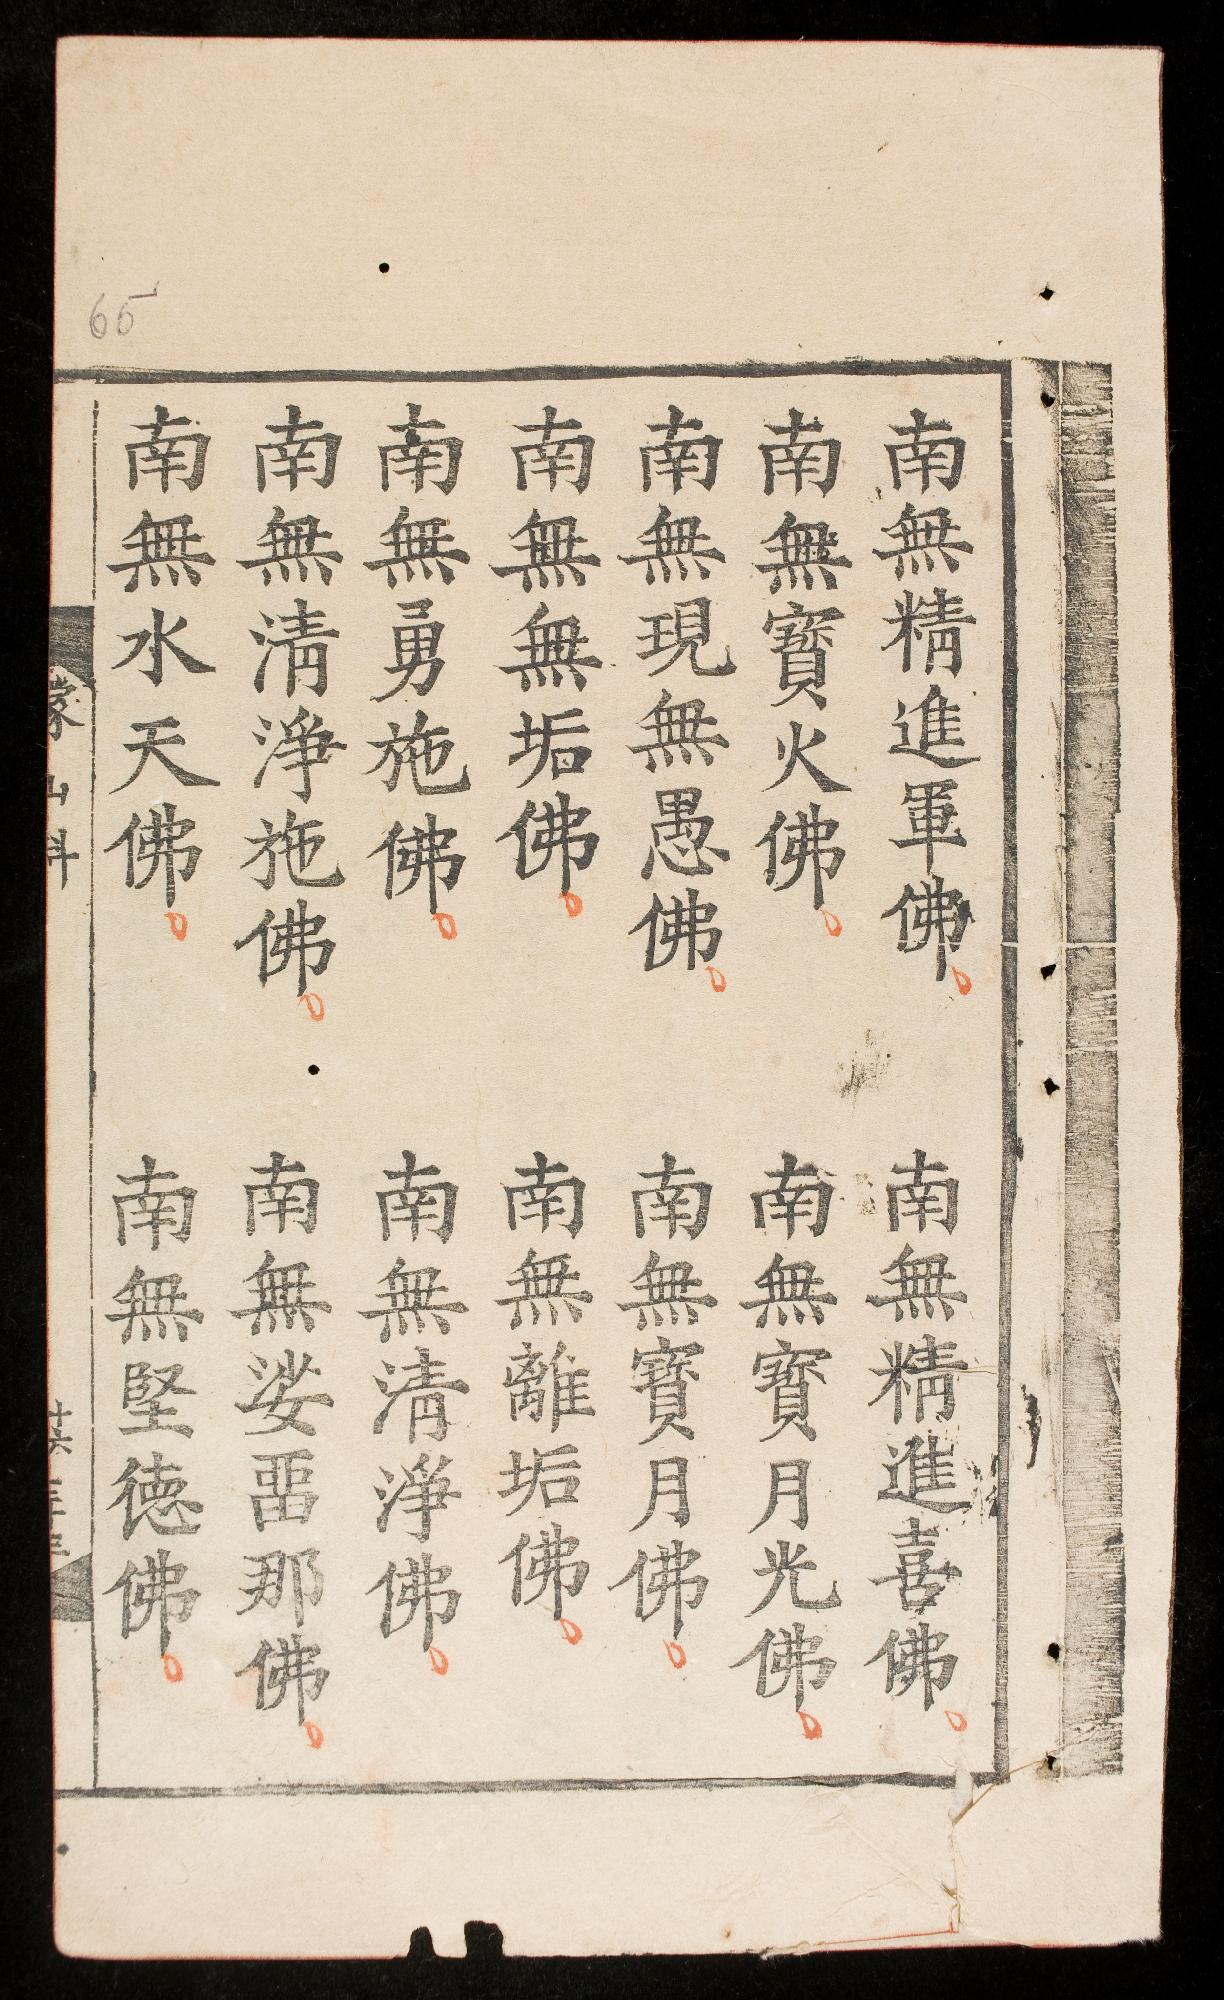 南無精進軍佛
南無精進喜佛
南無寳火佛
南無寳月光佛
南無現無愚佛
南無寳月佛
南無無垢佛
南無離垢佛
南無勇施佛
南無清淨佛
南無清淨施佛
南無娑畱那佛
南無水天佛
南無堅德佛
65
蒙山科